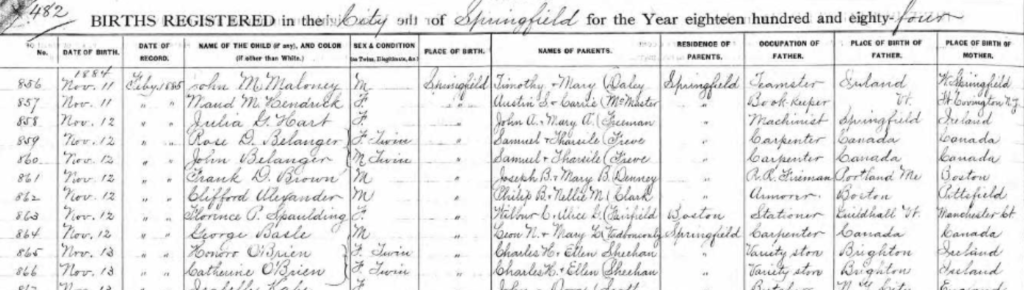 482 BIRTHS REGISTERED in the City of Springfield for the Year eighteen hundred and eighty-four
No. DATE OF BIRTH. DATE OF RECORD. NAME OF THE CHILD (if any), AND COLOR (If other than White.) SEX & CONDITION (as Twins, Illegitimate, &c.) PLACE OF BIRTH. NAMES OF PARENTS. RESIDENCE OF PARENTS. OCCUPATION OF FATHER. PLACE OF BIRTH OF FATHER. PLACE OF BIRTH OF MOTHER.
1884
856 Nov. 11 Feby. 1885 John M. Maloney M Springfield Timothy + Mary (Daley Springfield Teamster Ireland W. Springfield
857 Nov. 11 " " Maud M. Kendrick F " Austin S. + Carrie (McMaster " Book keeper Vt. Ft Covington N.Y.
858 Nov. 12 " " Julia G. Hart F " John A. + Mary A. (Freeman " Machinist Springfield Ireland
859 Nov. 12 " " Rose D. Belanger F. Twin " Samuel + Tharsile (Treve " Carpenter Canada Canada
860 Nov. 12 " " John Belanger M Twin " Samuel + Tharsile (Treve " Carpenter Canada Canada
861 Nov. 12 " " Frank D. Brown M " Joseph B. + Mary B. (Denney " R.R. Fireman Portland Me Boston
862 Nov. 12 " " Clifford Alexander M " Philip B. + Nellie M. (Clark " Armorer Boston Pittsfield
863 Nov. 12 " " Florence P. Spaulding F " Wilbur C. + Alice G. (Fairfield Boston Stationer Guildhall Vt. Manchester Ct
864 Nov. 12 " " George Basle M " Leon N. + Mary L. Springfield Carpenter Canada Canada
865 Nov. 13 " " Honora O'Brien F. Twin " Charles H. + Ellen (Sheehan " Variety store Brighton Ireland
866 Nov. 13 " " Catherine O'Brien F. Twin " Charles H. + Ellen (Sheehan " Variety store Brighton Ireland